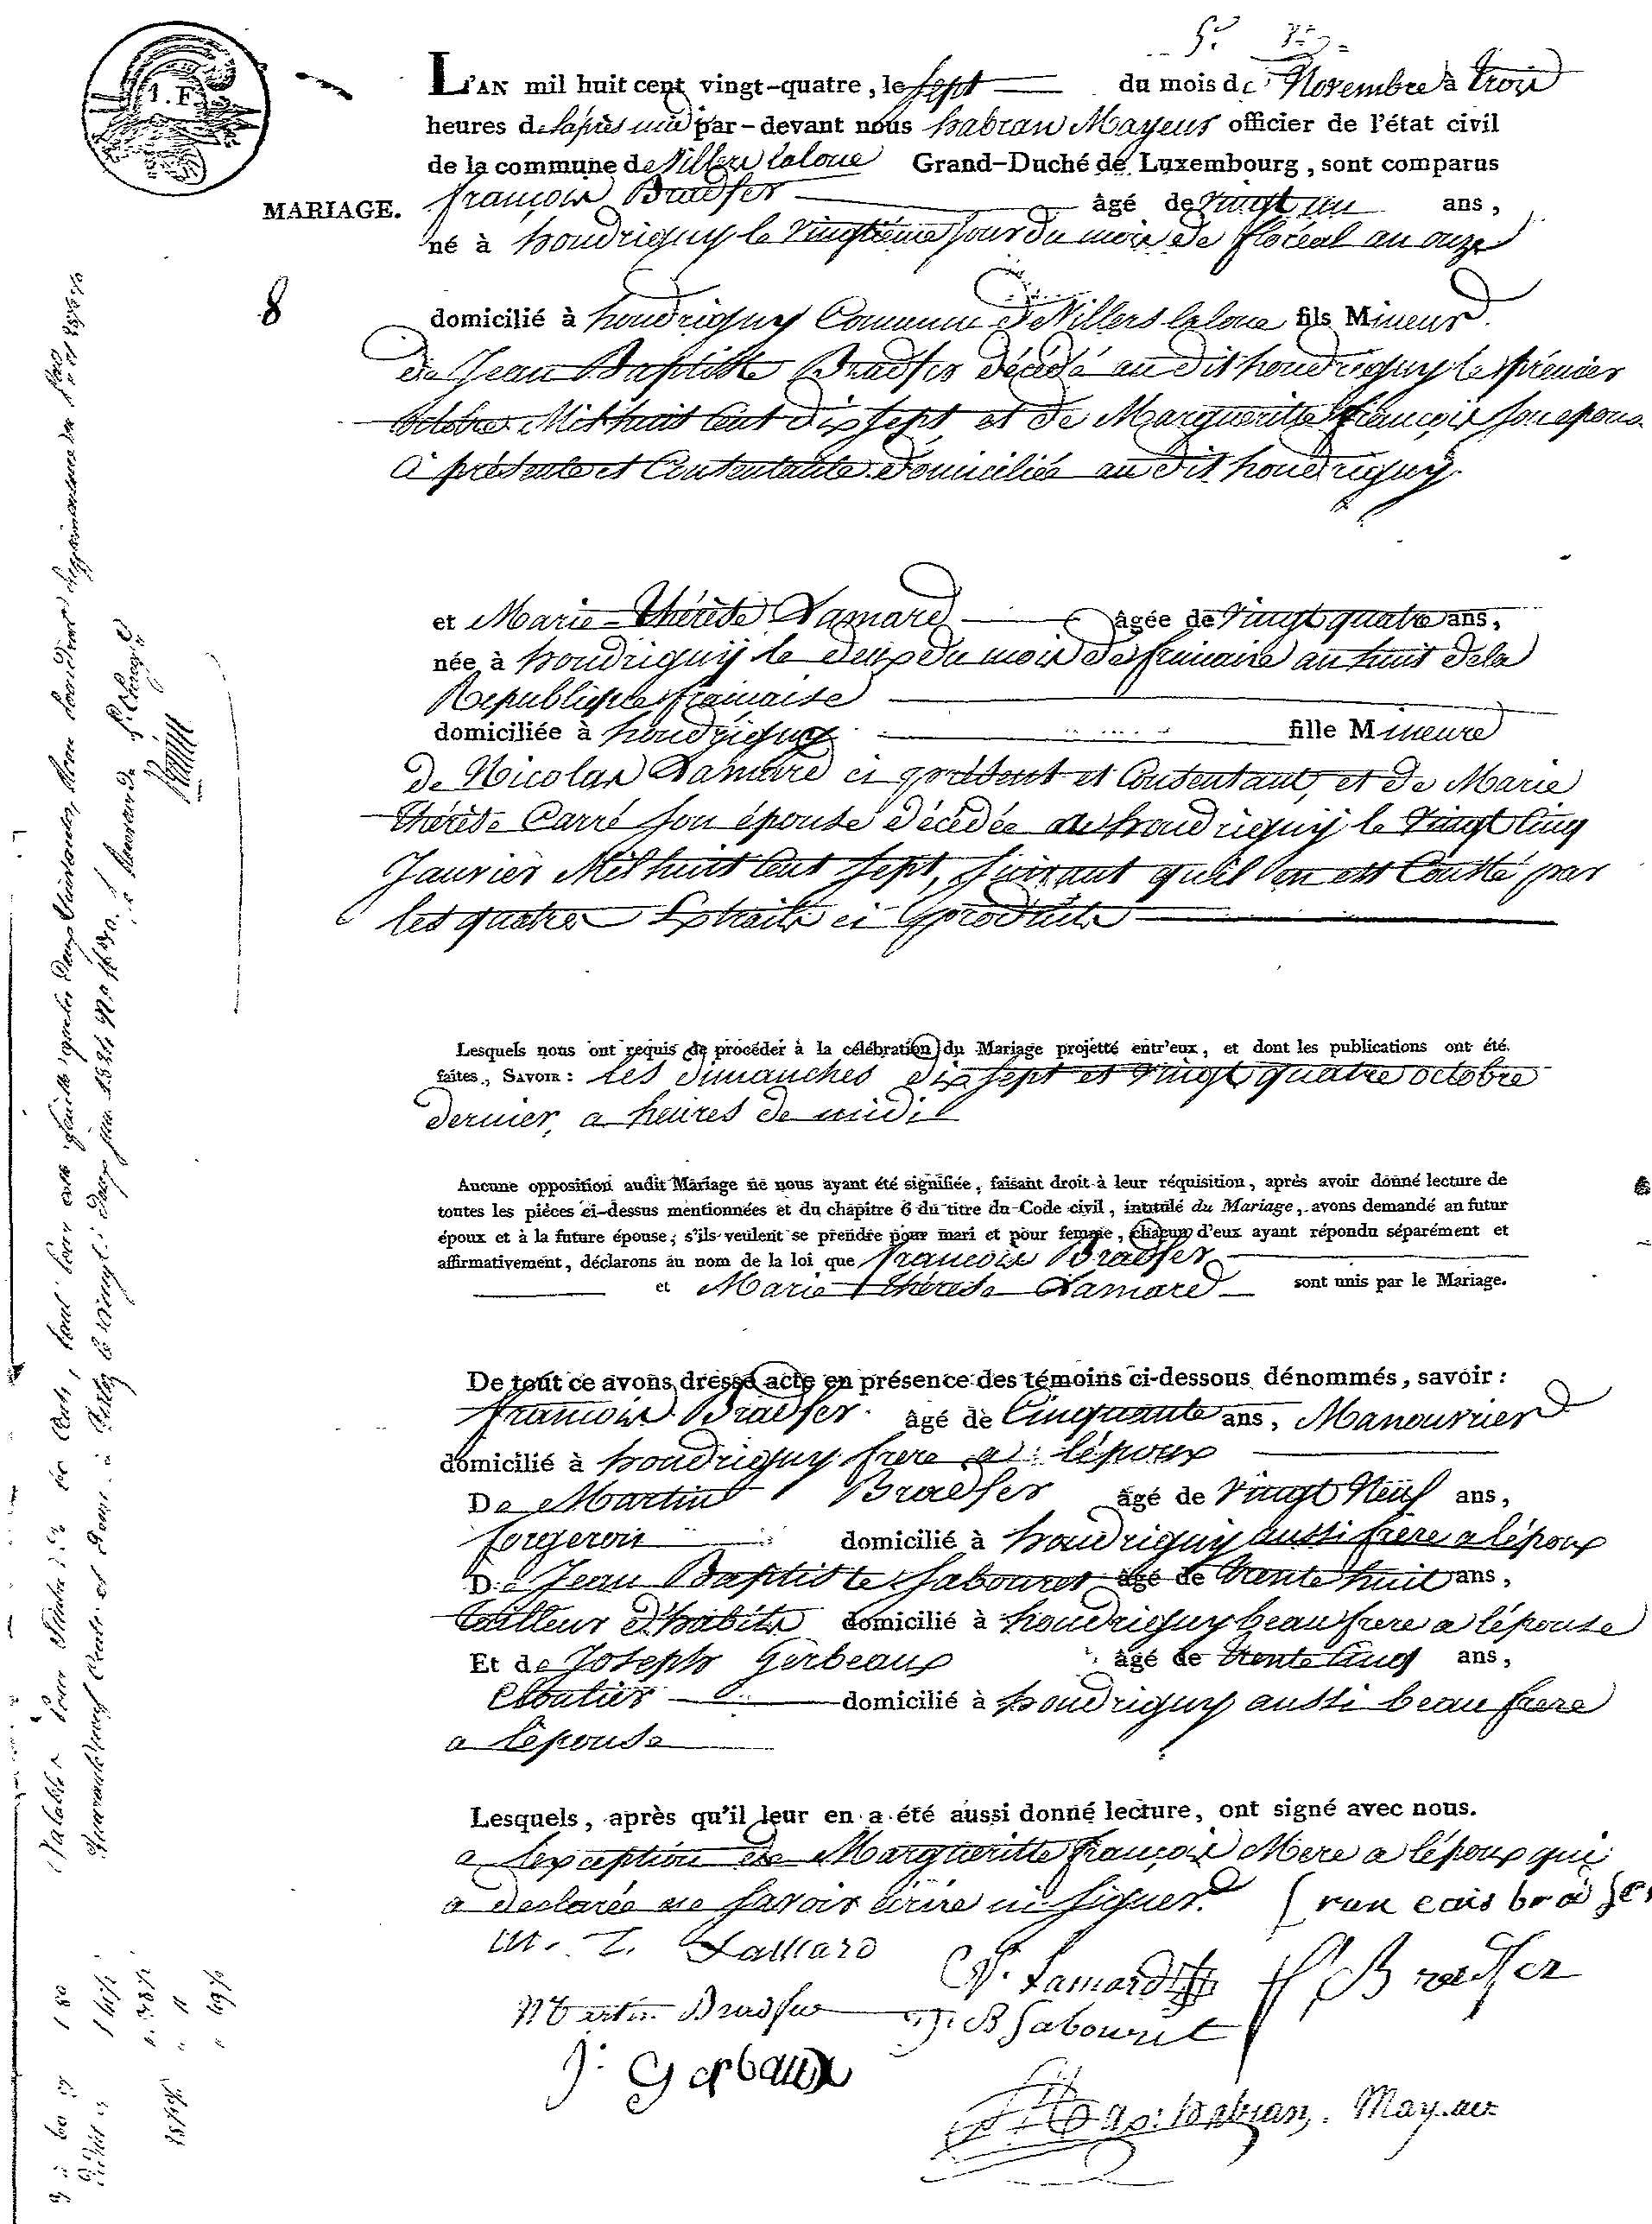 1. F.
L'AN mil huit cent vingt-quatre, le sept du mois de Novembre à trois
heures de l'après midi par-devant nous habran Mayeur officier de l'état civil
de la commune de Villers laloue Grand-Duché de Luxembourg, sont comparus
MARIAGE. françois Bradfer âgé de vingt un ans,
né à houdrigny le vingtième jour du mois de floréal an onze
8
domicilié à houdrigny Commune de Villers laloue fils Mineur
de Jean Baptiste Bradfer décédé au dit houdrigny le prémier
octobre Mil huit Cent dix sept et de Margueritte françois son epouse
ci présente et Consentante domiciliée au dit houdrigny
et Marie-thérèse Lamard âgée de vingt quatre ans,
née à houdrigny le deux du mois de frimaire an huit de la
Republique française
domiciliée à houdrigny fille Mineure
de Nicolas Lamard ci présent et Consentant, et de Marie
thérèse Carré son épouse décédée a houdrigny le vingt Cinq
Janvier Mil huit Cent sept, suivant qu'il en est Consté par
les quatre Extraits ci produits
Lesquels nous ont requis de procéder à la célébration du Mariage projetté entr'eux, et dont les publications ont été
faites, SAVOIR : les dimanches dix sept et vingt quatre octobre
dernier, a heures de midi
Aucune opposition audit Mariage ne nous ayant été signifiée, faisant droit à leur réquisition, après avoir donné lecture de
toutes les pièces ci-dessus mentionnées et du chapitre 6 du titre du Code civil, intitulé du Mariage, avons demandé au futur
époux et à la future épouse, s'ils veulent se prendre pour mari et pour femme, chacun d'eux ayant répondu séparément et
affirmativement, déclarons au nom de la loi que françois Bradfer
et Marie thérèse Lamard sont unis par le Mariage.
De tout ce avons dressé acte en présence des témoins ci-dessous dénommés, savoir :
françois Bradfer âgé de Cinquante ans, Manouvrier
domicilié à houdrigny frere a lépoux
De Martin Bradfer âgé de vingt Neuf ans,
forgeron domicilié à houdrigny aussi frere a lépoux
De Jean Baptiste Sabouret âgé de trente huit ans,
tailleur d'habits domicilié à houdrigny beau frere a lépouse
Et de Joseph Gerbeaux âgé de trente Cinq ans,
Cloutier domicilié à houdrigny aussi beau frere
a lépouse
Lesquels, après qu'il leur en a été aussi donné lecture, ont signé avec nous.
a lexception de Margueritte françois Mere a lépoux qui
a declarée ne savoir écrire ni signer.
M. T. Lamard
N. Lamard
f Bradfer
Martin Bradfer
J. B Sabouret
J. Gerbaux
habran, Mayeur